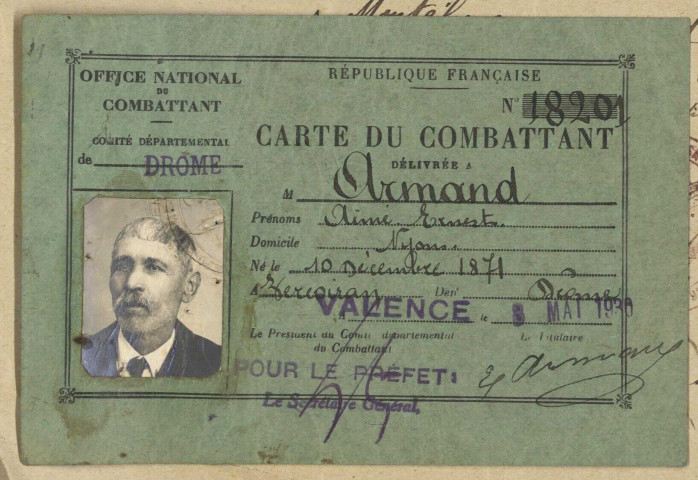 OFFICE NATIONAL
DU
COMBATTANT
COMITÉ DÉPARTEMENTAL
de DRÔME
RÉPUBLIQUE FRANÇAISE
N° 18201
CARTE DU COMBATTANT
DÉLIVRÉE A
M Armand
Prénoms Aimé Ernest
Domicile Nyons
Né le 10 Décembre 1871
A Dép' Drôme
VALENCE le 8 MAI 1930
Le Président du Comité départemental
du Combattant
Le Titulaire
POUR LE PRÉFET:
Le Secrétaire Général,
Armand